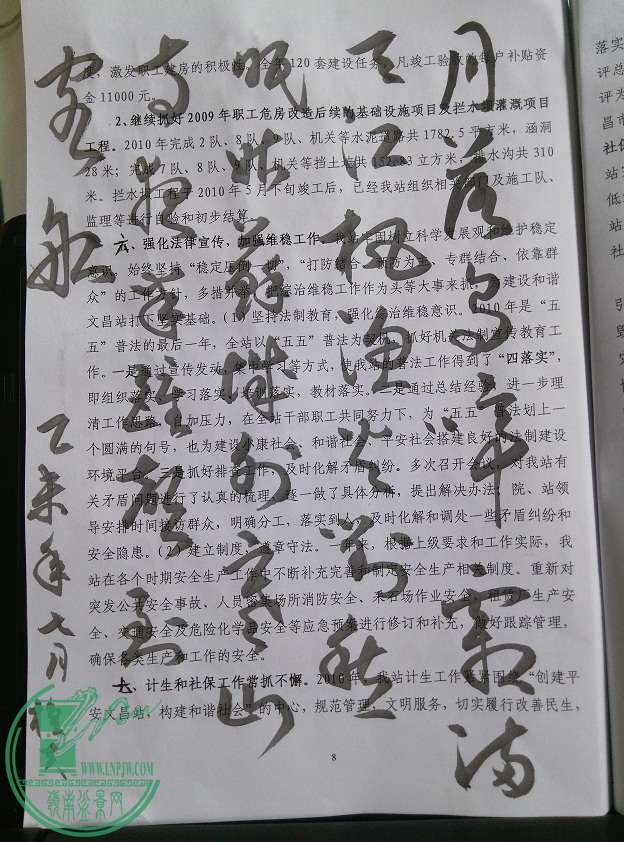 月落乌啼霜满
天江枫渔火对愁
眠姑苏城外寒山
寺夜半钟声到
客船 乙未年七月
度，激发职工建房的积极性。全年120套建设任务，凡竣工验收的每户补贴资
金11000元。
2、继续抓好2009年职工危房改造后续的基础设施项目及拦水坝灌溉项目
工程。2010年完成2队、8队、9队、机关等水泥道路共1782.5平方米，涵洞
28米；完成7队、8队、9队、机关等挡土墙共152.83立方米，排水沟共310
米。拦水坝工程于2010年5月下旬竣工后，已经我站组织相关部门及施工队、
监理等进行自验和初步结算。
六、强化法律宣传，加强维稳工作。我站牢固树立科学发展观和维护稳定
意识，始终坚持“稳定压倒一切”，“打防结合、预防为主、专群结合、依靠群
众”的工作方针，多措并举，把综治维稳工作作为头等大事来抓，为建设和谐
文昌站打下坚实基础。（1）坚持法制教育，强化综治维稳意识。2010年是“五
五”普法的最后一年，全站以“五五”普法为契机，抓好机关法制宣传教育工
作。一是通过宣传发动，集中学习等方式，使我站的普法工作得到了“四落实”，
即组织落实、学习落实、培训落实，教材落实。二是通过总结经验，进一步理
清工作思路，自加压力，在全站干部职工共同努力下，为“五五”普法划上一
个圆满的句号，也为建设小康社会、和谐社会、平安社会搭建良好的法制建设
环境平台。三是抓好排查工作，及时化解矛盾纠纷。多次召开会议，对我站有
关矛盾问题进行了认真的梳理，逐一做了具体分析，提出解决办法；院、站领
导安排时间接访群众，明确分工，落实到人，及时化解和调处一些矛盾纠纷和
安全隐患。（2）建立制度，遵章守法。一年来，根据上级要求和工作实际，我
站在各个时期安全生产工作中不断补充完善和制定安全生产相关制度。重新对
突发公共安全事故、人员密集场所消防安全、采石场作业安全、租赁厂生产安
全、交通安全及危险化学品安全等应急预案进行修订和补充，做好跟踪管理，
确保各类生产和工作的安全。
七、计生和社保工作常抓不懈。2010年，我站计生工作紧紧围绕“创建平
安文昌站，构建和谐社会”的中心，规范管理，文明服务，切实履行改善民生，
8
落实
评总
评为
昌市
社保
站
低
站
社
WWW.LNPJW.COM
岭南盆景网